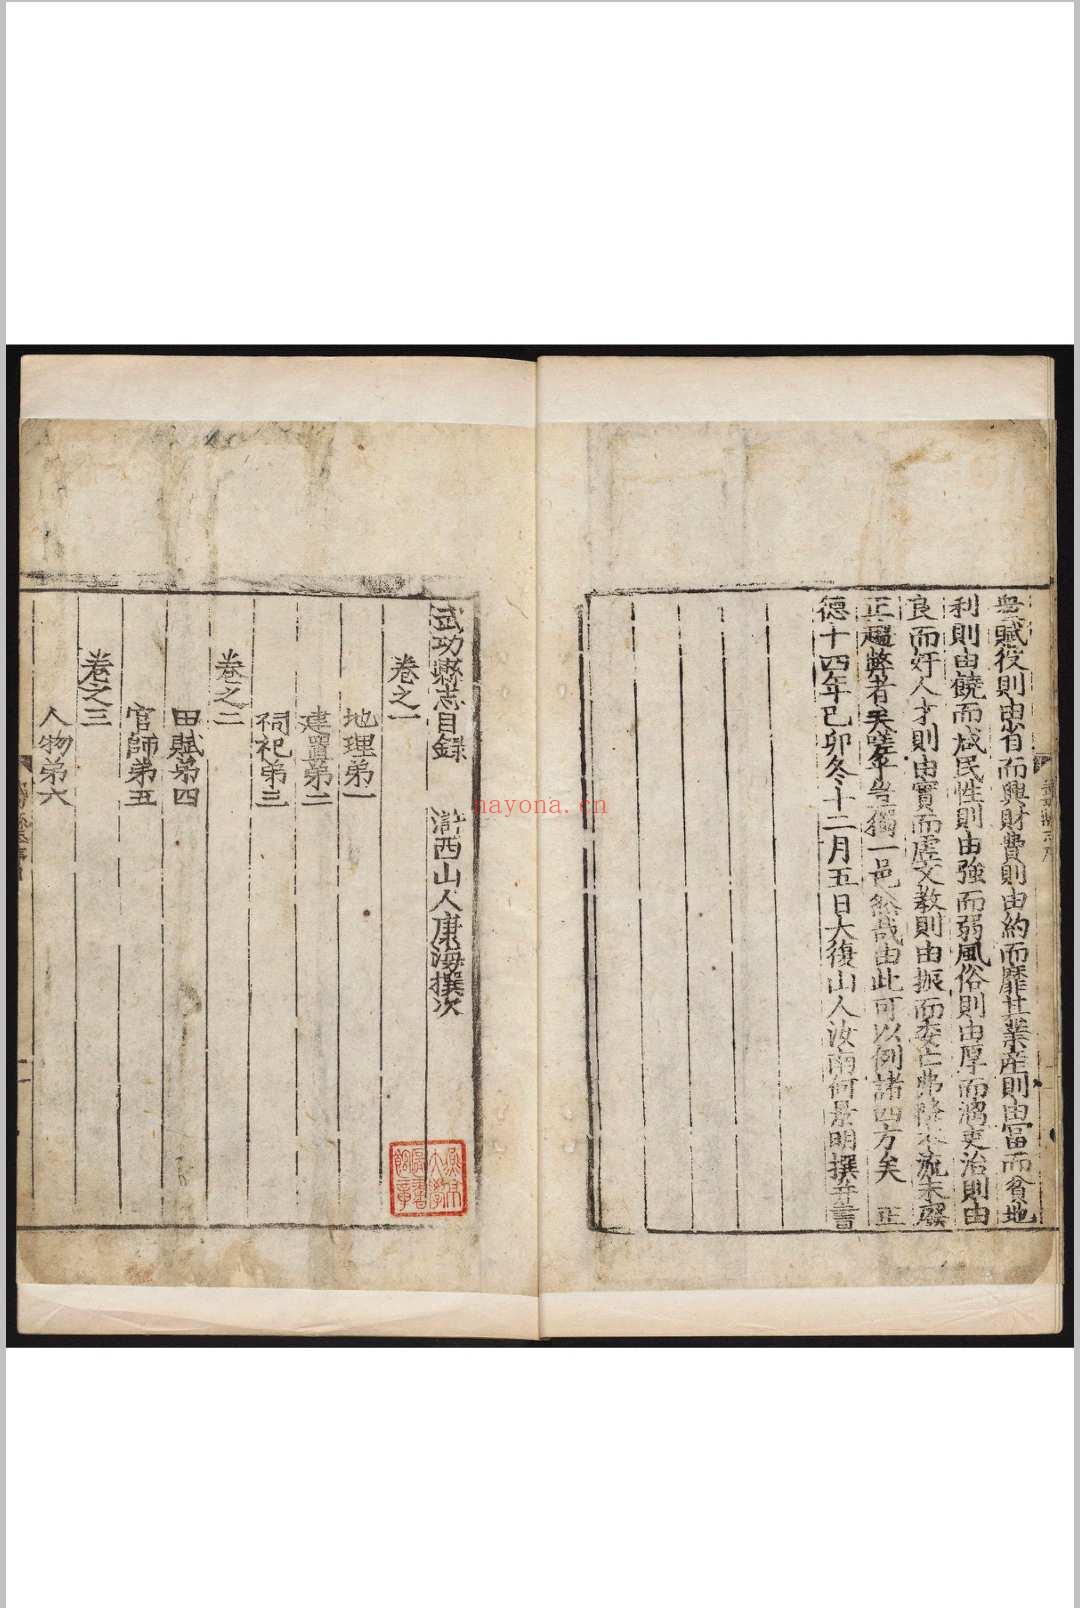 無賦役則由省而興財費則由約而靡其業産則由富而貧地
利則由饒而咸民性則由強而弱風俗則由厚而漓吏治則由
良而奸人才則由實而虛文教則由振而委亡弗隆本流末廢
正趨弊者矣嗟乎豈獨一邑然哉由此可以例諸四方矣 正
德十四年己卯冬十二月五日大復山人汝南何景明撰并書
武功縣志目錄 滸西山人康海撰次
卷之一
地理弟一
建置弟二
祠祀弟三
卷之二
田賦弟四
官師弟五
卷之三
人物弟六
燕京大學圖書館章
nayona.cn